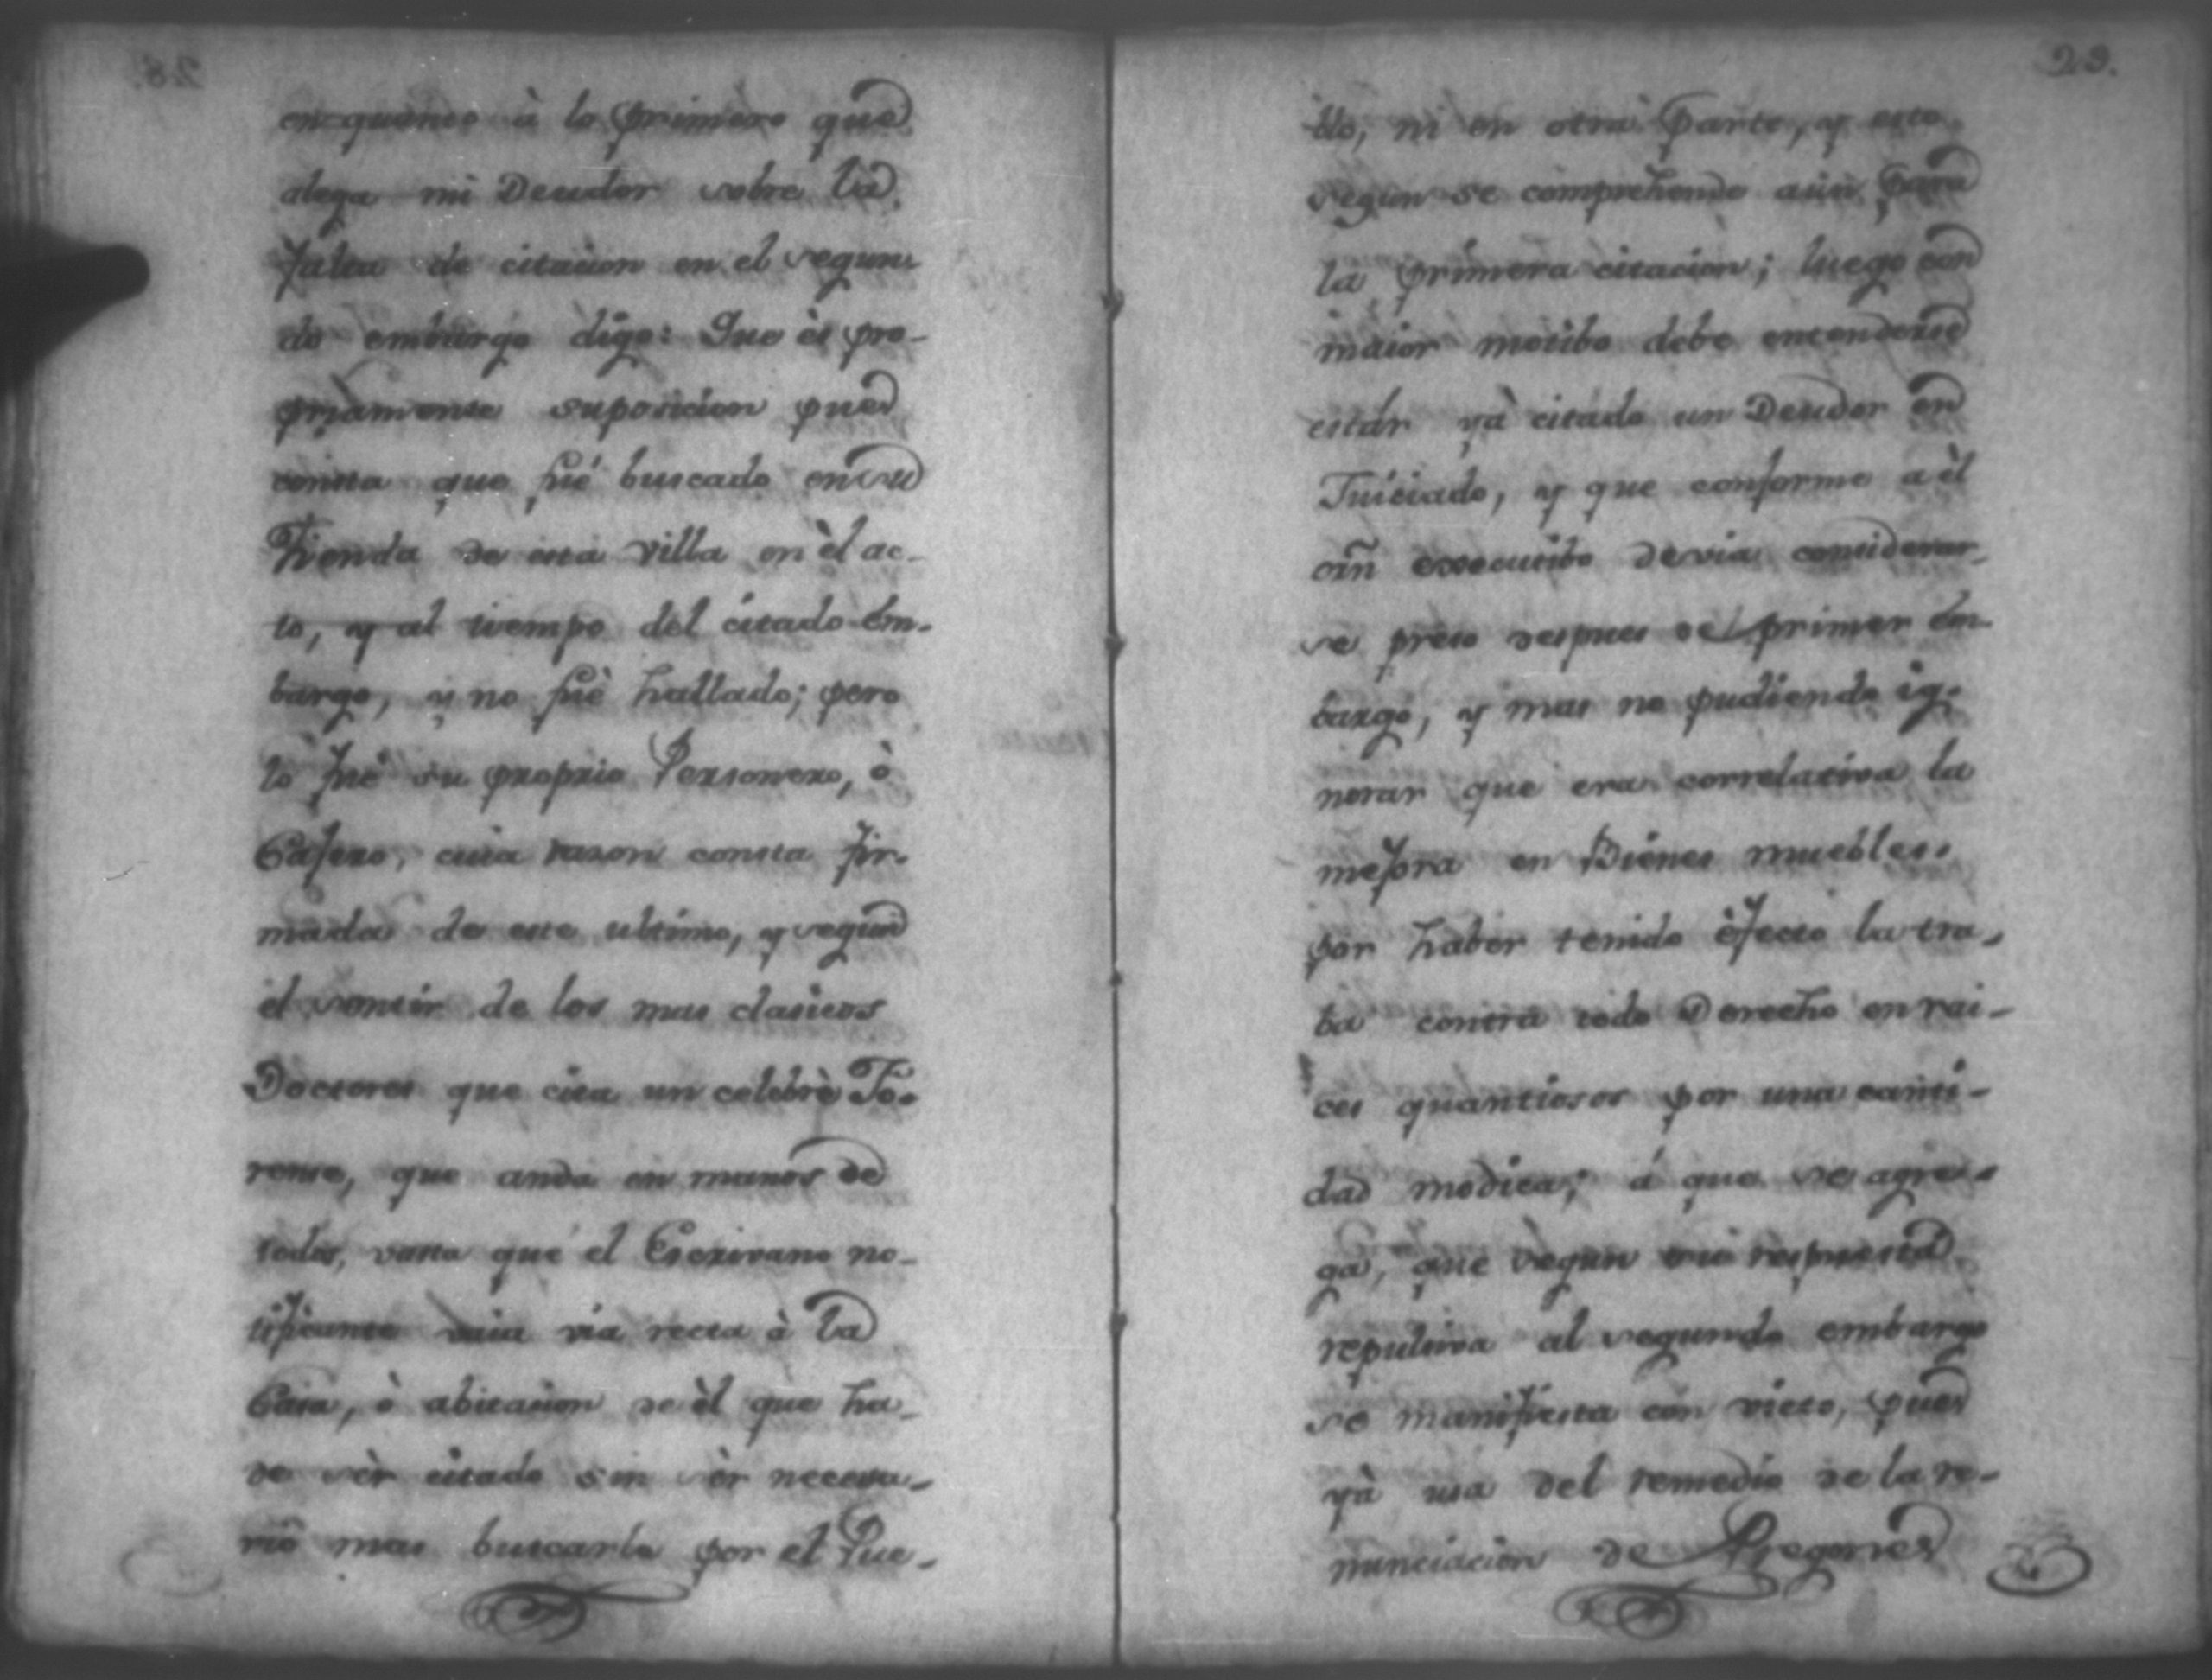 en quanto à lo primero que
alega mi Deudor sobre la
falta de citacion en el segun-
do embargo digo: Que ès pro-
priamente suposicion pues
consta que fué buscado en su
Tienda de esta villa en èl ac-
to, y al tiempo del citado Em-
bargo, y no fuè hallado; pero
lo fué su proprio Personero, ò
Cajero, cuia razon consta fir-
mada de este ultimo, y segun
el sentir de los mas clasicos
Doctores que cita un celebrè Fo-
rense, que anda en manos de
todos, vasta que el Escrivano no-
tificante vaia via recta à la
Casa, ò abitacion de èl que ha
de sèr citado sin sèr necesa-
rio mas buscarlo por el Pue-
29.
blo, ni en otra parte, y esto
segun se comprehende aùn para
la primera citacion; luego con
maior motibo debe entenderse
estàr yà citado un Deudor en
Juiciado, y que conforme a èl
orñ executibo devia considerar-
se preso despues del primer em-
bargo, y mas no pudiendo ig-
norar que era correlativa la
mejora en Bienes muebles
por haber tenido èfecto la tra-
ba contra todo Derecho en rai-
ces quantiosos por una canti-
dad modica; á que se agre-
ga, que segun su respuesta
repulsiva al segundo embargo
se manifiesta con visto, pues
yà usa del remedio de la re-
nunciacion de Pregones